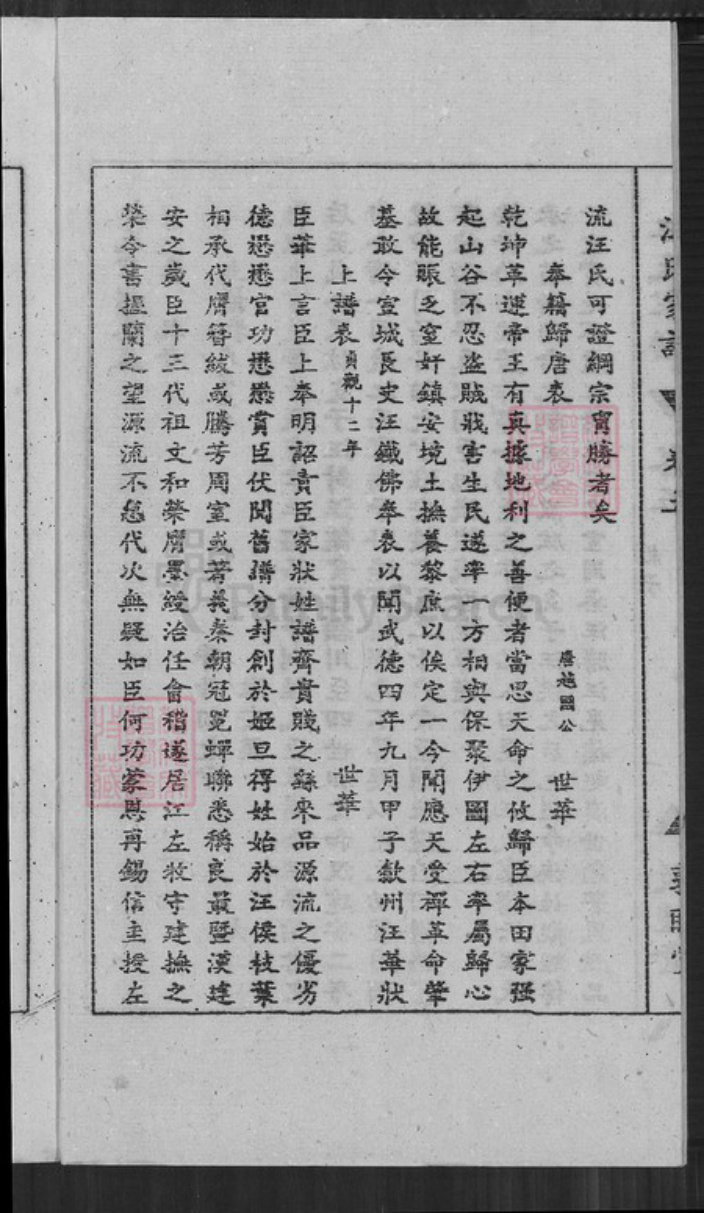 流汪氏可證綱宗寗勝者矣
奉籍歸唐表 唐越國公 世華
乾坤革運帝王有真據地利之善便者當思天命之攸歸臣本田家强
起山谷不忍盜賊戕害生民遂率一方相與保聚伊圖左右率屬歸心
故能賑乏窒奸鎮安境土撫養黎庶以俟定一今聞應天受禪革命肇
基敢令宣城長史汪鐵佛奉表以聞武德四年九月甲子歙州汪華狀
上譜表貞觀十二年 世華
臣華上言臣上奉明詔責臣家狀姓譜齊貴賤之繇來品源流之優劣
德懋懋官功懋懋賞臣伏聞舊譜分封創於姬旦得姓始於汪侯枝葉
相承代膺簪紱或騰芳周室或著義秦朝冠冕蟬聯悉稱良最暨漢建
安之歲臣十三代祖文和榮膺墨綬治任會稽遂居江左牧守建撫之
榮令書握蘭之望源流不怠代次無疑如臣何功蒙恩再錫信圭授左